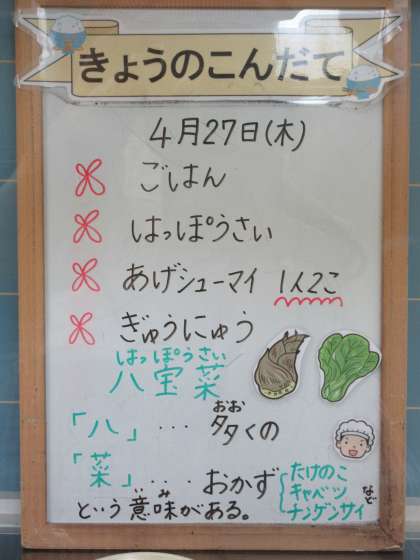 きょうのこんだて
4月27日(木)
ごはん
はっぽうさい
あげシューマイ 1人2こ
ぎゅうにゅう
はっぽうさい
八宝菜
「八」… 多くの
おお
「菜」…. おかず
たけのこ
キャベツ
チンゲンサイ
など
という意味がある。
いみ